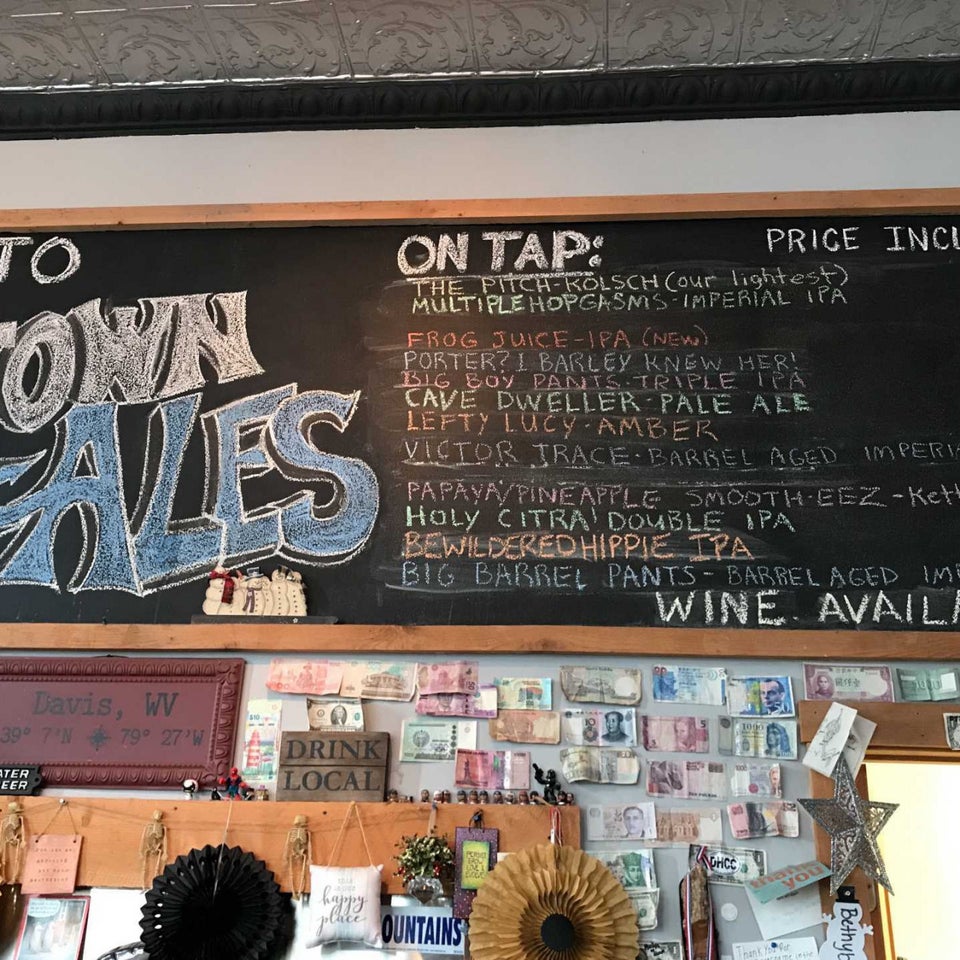 TO
TOWN
ALES
ON TAP:
PRICE INCL
THE PITCH-KOLSCH (our lightest)
MULTIPLE HOPGASMS-IMPERIAL IPA
FROG JUICE-IPA (NEW)
PORTER? I BARLEY KNEW HER!
BIG BOY PANTS-TRIPLE IPA
CAVE DWELLER-PALE ALE
LEFTY LUCY-AMBER
VICTOR TRACE-BARREL AGED IMPERIA
PAPAYA/PINEAPPLE SMOOTH-EEZ-Kett
HOLY CITRA! DOUBLE IPA
BEWILDERED HIPPIE IPA
BIG BARREL PANTS-BARREL AGED IMP
WINE AVAILA
Davis, WV
39° 7'N 79° 27'W
ATER
EER
DRINK
LOCAL
this is our
happy
place
OUNTAINS
DHCC
YOU
Thank You For